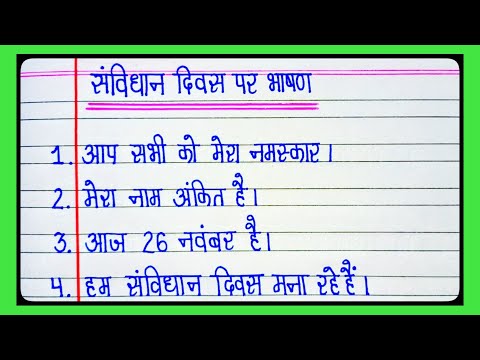 संविधान दिवस पर भाषण
1. आप सभी को मेरा नमस्कार।
2. मेरा नाम अंकित है।
3. आज 26 नवंबर है।
4. हम संविधान दिवस मना रहे हैं।